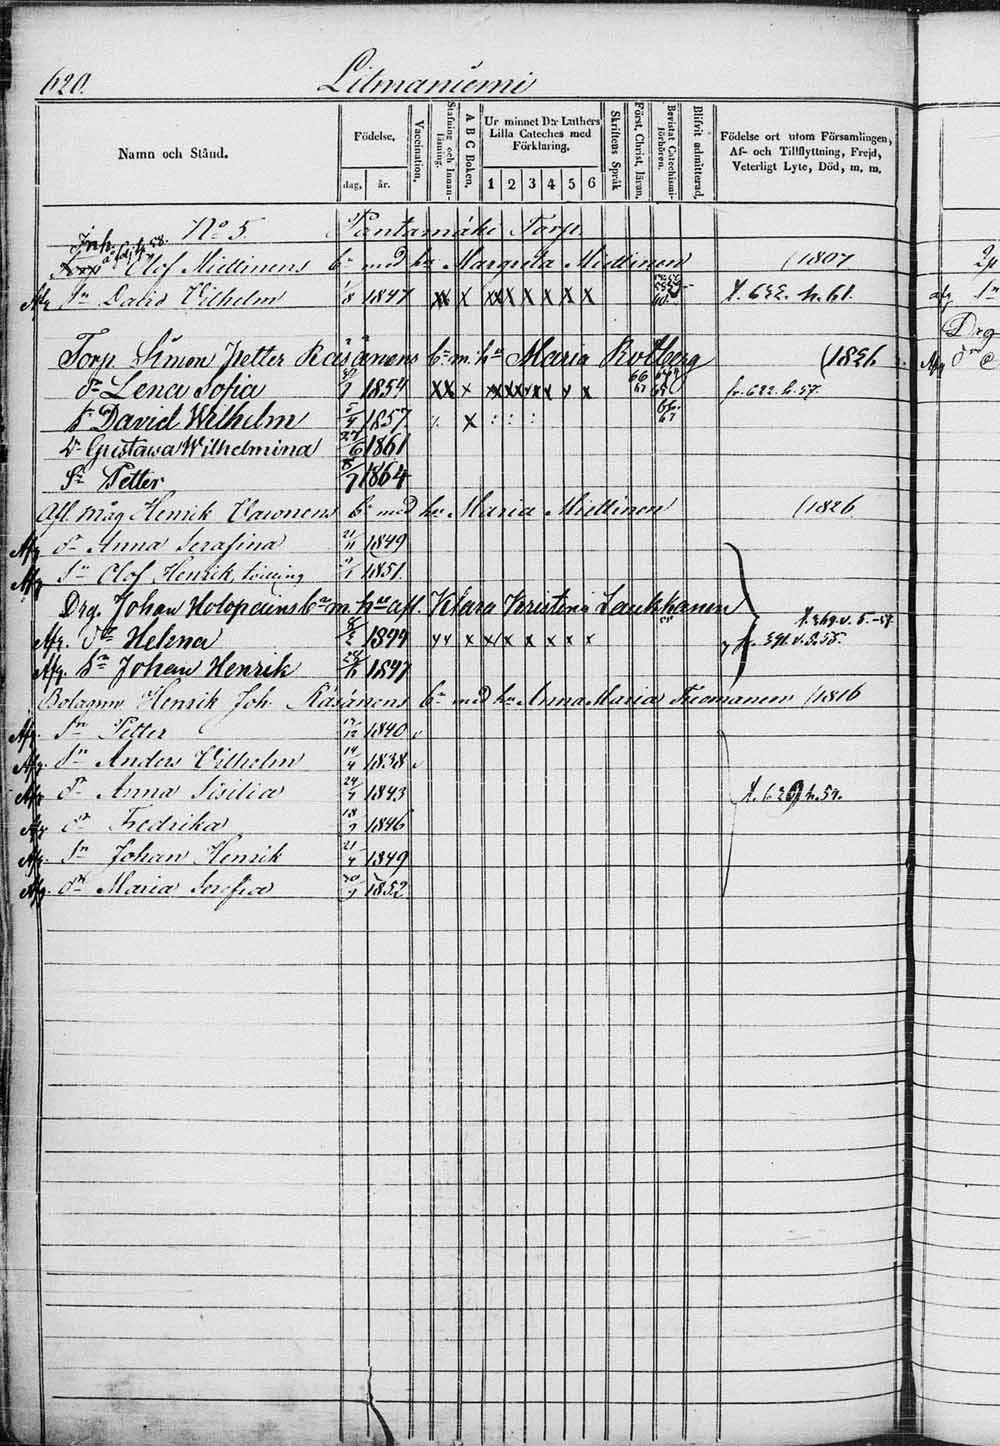 620. Litmaniemi
Namn och Stånd.
Födelse.
dag, år.
Vaccination.
Stafning och Innanläsning.
A B C Boken.
Ur minnet D:r Luthers Lilla Cateches med Förklaring.
1 2 3 4 5 6
Skriftens Språk
Först, Christ, läran.
Bevistat Catechismiförhören.
Blifvit admitterad.
Födelse ort utom Församlingen, Af- och Tillflyttning, Frejd, Veterligt Lyte, Död, m. m.
No 5. Pentamäki Torp.
Inh.
Olof Miettinens bn med hu Margreta Miettinen (1807
Afg Sn David Vilhelm 1/8 1847 XX X XX X X X X X t. 622. h. 61.
Torp. Simon Petter Räsänens bn m: hu Maria Rotberg (1836
dr Lena Sofia 1854 XX x fr. 622. h. 57.
Sn David Wilhelm 5/4 1857 X 67
dr Gustawa Wilhelmina 27/6 1861
Sn Petter 8/7 1864
Afl. måg Henrik Varonens bn med hu Maria Miettinen (1826
Afg dr Anna Serafina 21/11 1849
Afg Sn Olof Henrik, tvilling 1851
Drg. Johan Holopainens bn m: hu afl. Klara Kristina Laukkanen
Afg. dr Helena 1844 x x x x x x x x t. 369. v. 5.-57.
Afg. Sn Johan Henrik 1847
Bolagsm Henrik Joh. Räsänens bn med hu Anna Maria Tuomanen (1816
Afg. Sn Petter 17/12 1840
Afg. Sn Anders Vilhelm 14/4 1838
Afg dr Anna Sisilia 24/7 1843 t. 629 h. 59.
Afg dr Fredrika 18/9 1846
Afg. Sn Johan Henrik 21/4 1849
Afg. dr Maria Serefia 30/9 1852